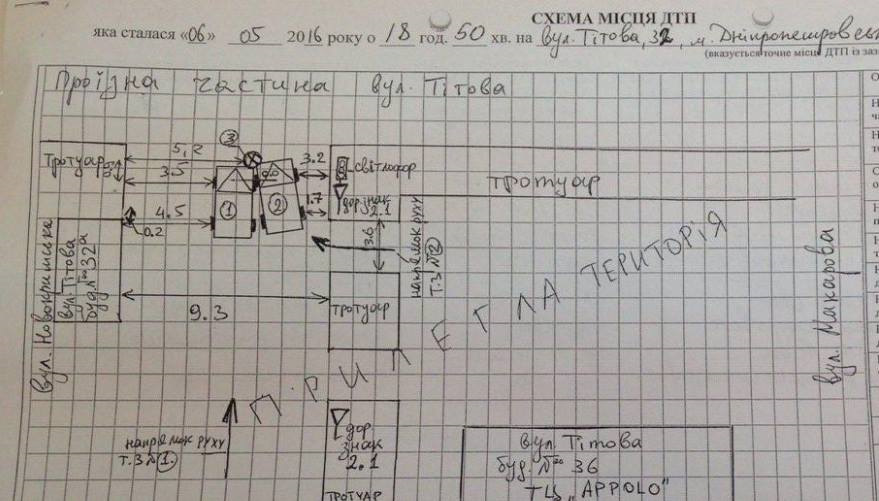 СХЕМА МІСЦЯ ДТП
яка сталася «06» 05 2016 року о 18 год. 50 хв. на вул. Тітова, 32, м. Дніпропетровськ
(вказується точне місце ДТП із заз
Проїзна частина вул. Тітова
Тротуар
5,2
3.5
3
3.2
світлофор
тротуар
1
2
4.5
0.2
1.7
дор. знак
2.1
3.6
напрямок руху
Т.З №2
вул. Новокримська
вул. Тітова
буд. № 32а
9.3
тротуар
ПРИЛЕГЛА ТЕРИТОРІЯ
вул. Макарова
напрямок руху
т.З №1.
дор.
знак
2.1
тротуар
вул. Тітова
буд. № 36
ТЦ „APPOLO"